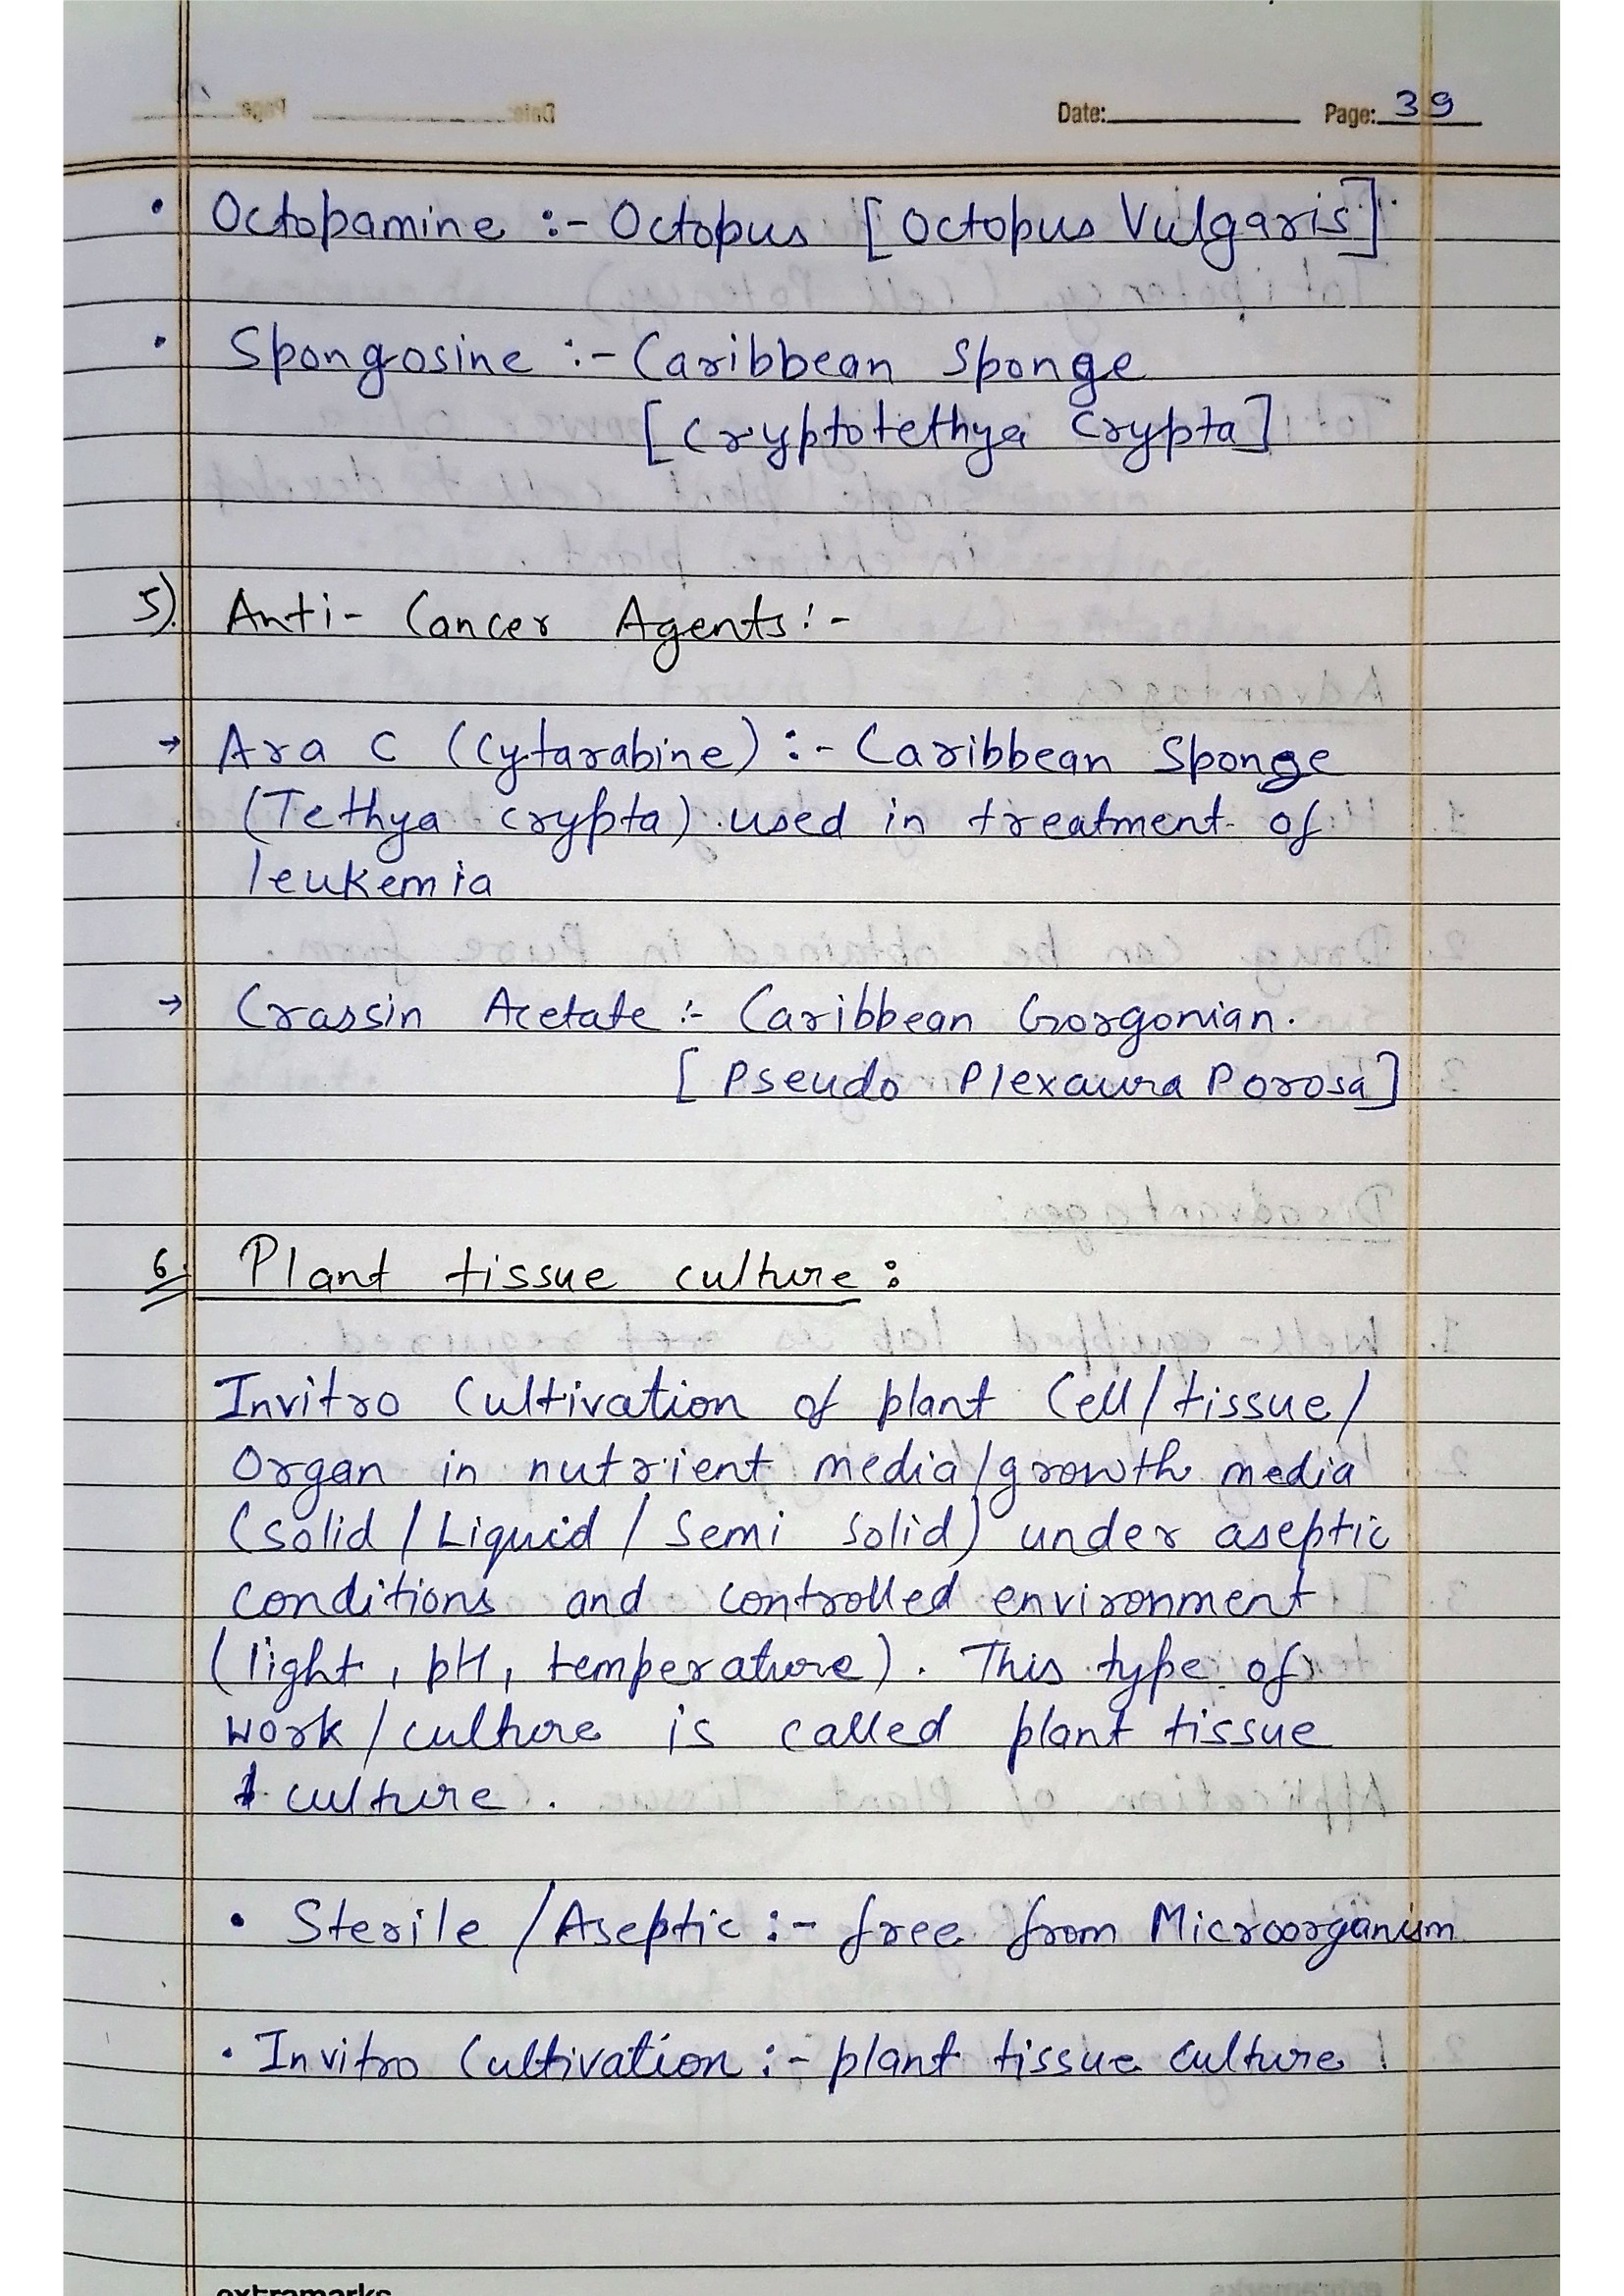 Date: Page: 39
• Octopamine :- Octopus [Octopus Vulgaris]
• Spongosine :- Caribbean Sponge
[Cryptotethya Crypta]
5) Anti- Cancer Agents :-
→ Ara C (Cytarabine) :- Caribbean Sponge
(Tethya crypta) used in treatment of
leukemia
→ Crassin Acetate :- Caribbean Gorgonian.
[Pseudo Plexaura Porosa]
6. Plant tissue culture :
Invitro Cultivation of plant Cell/tissue/
Organ in nutrient media/growth media
(solid / Liquid / Semi Solid) under aseptic
conditions and controlled environment
(light, pH, temperature). This type of
work/culture is called plant tissue
culture.
• Sterile /Aseptic :- free from Microorganism
• Invitro Cultivation :- plant tissue culture !
extramarks